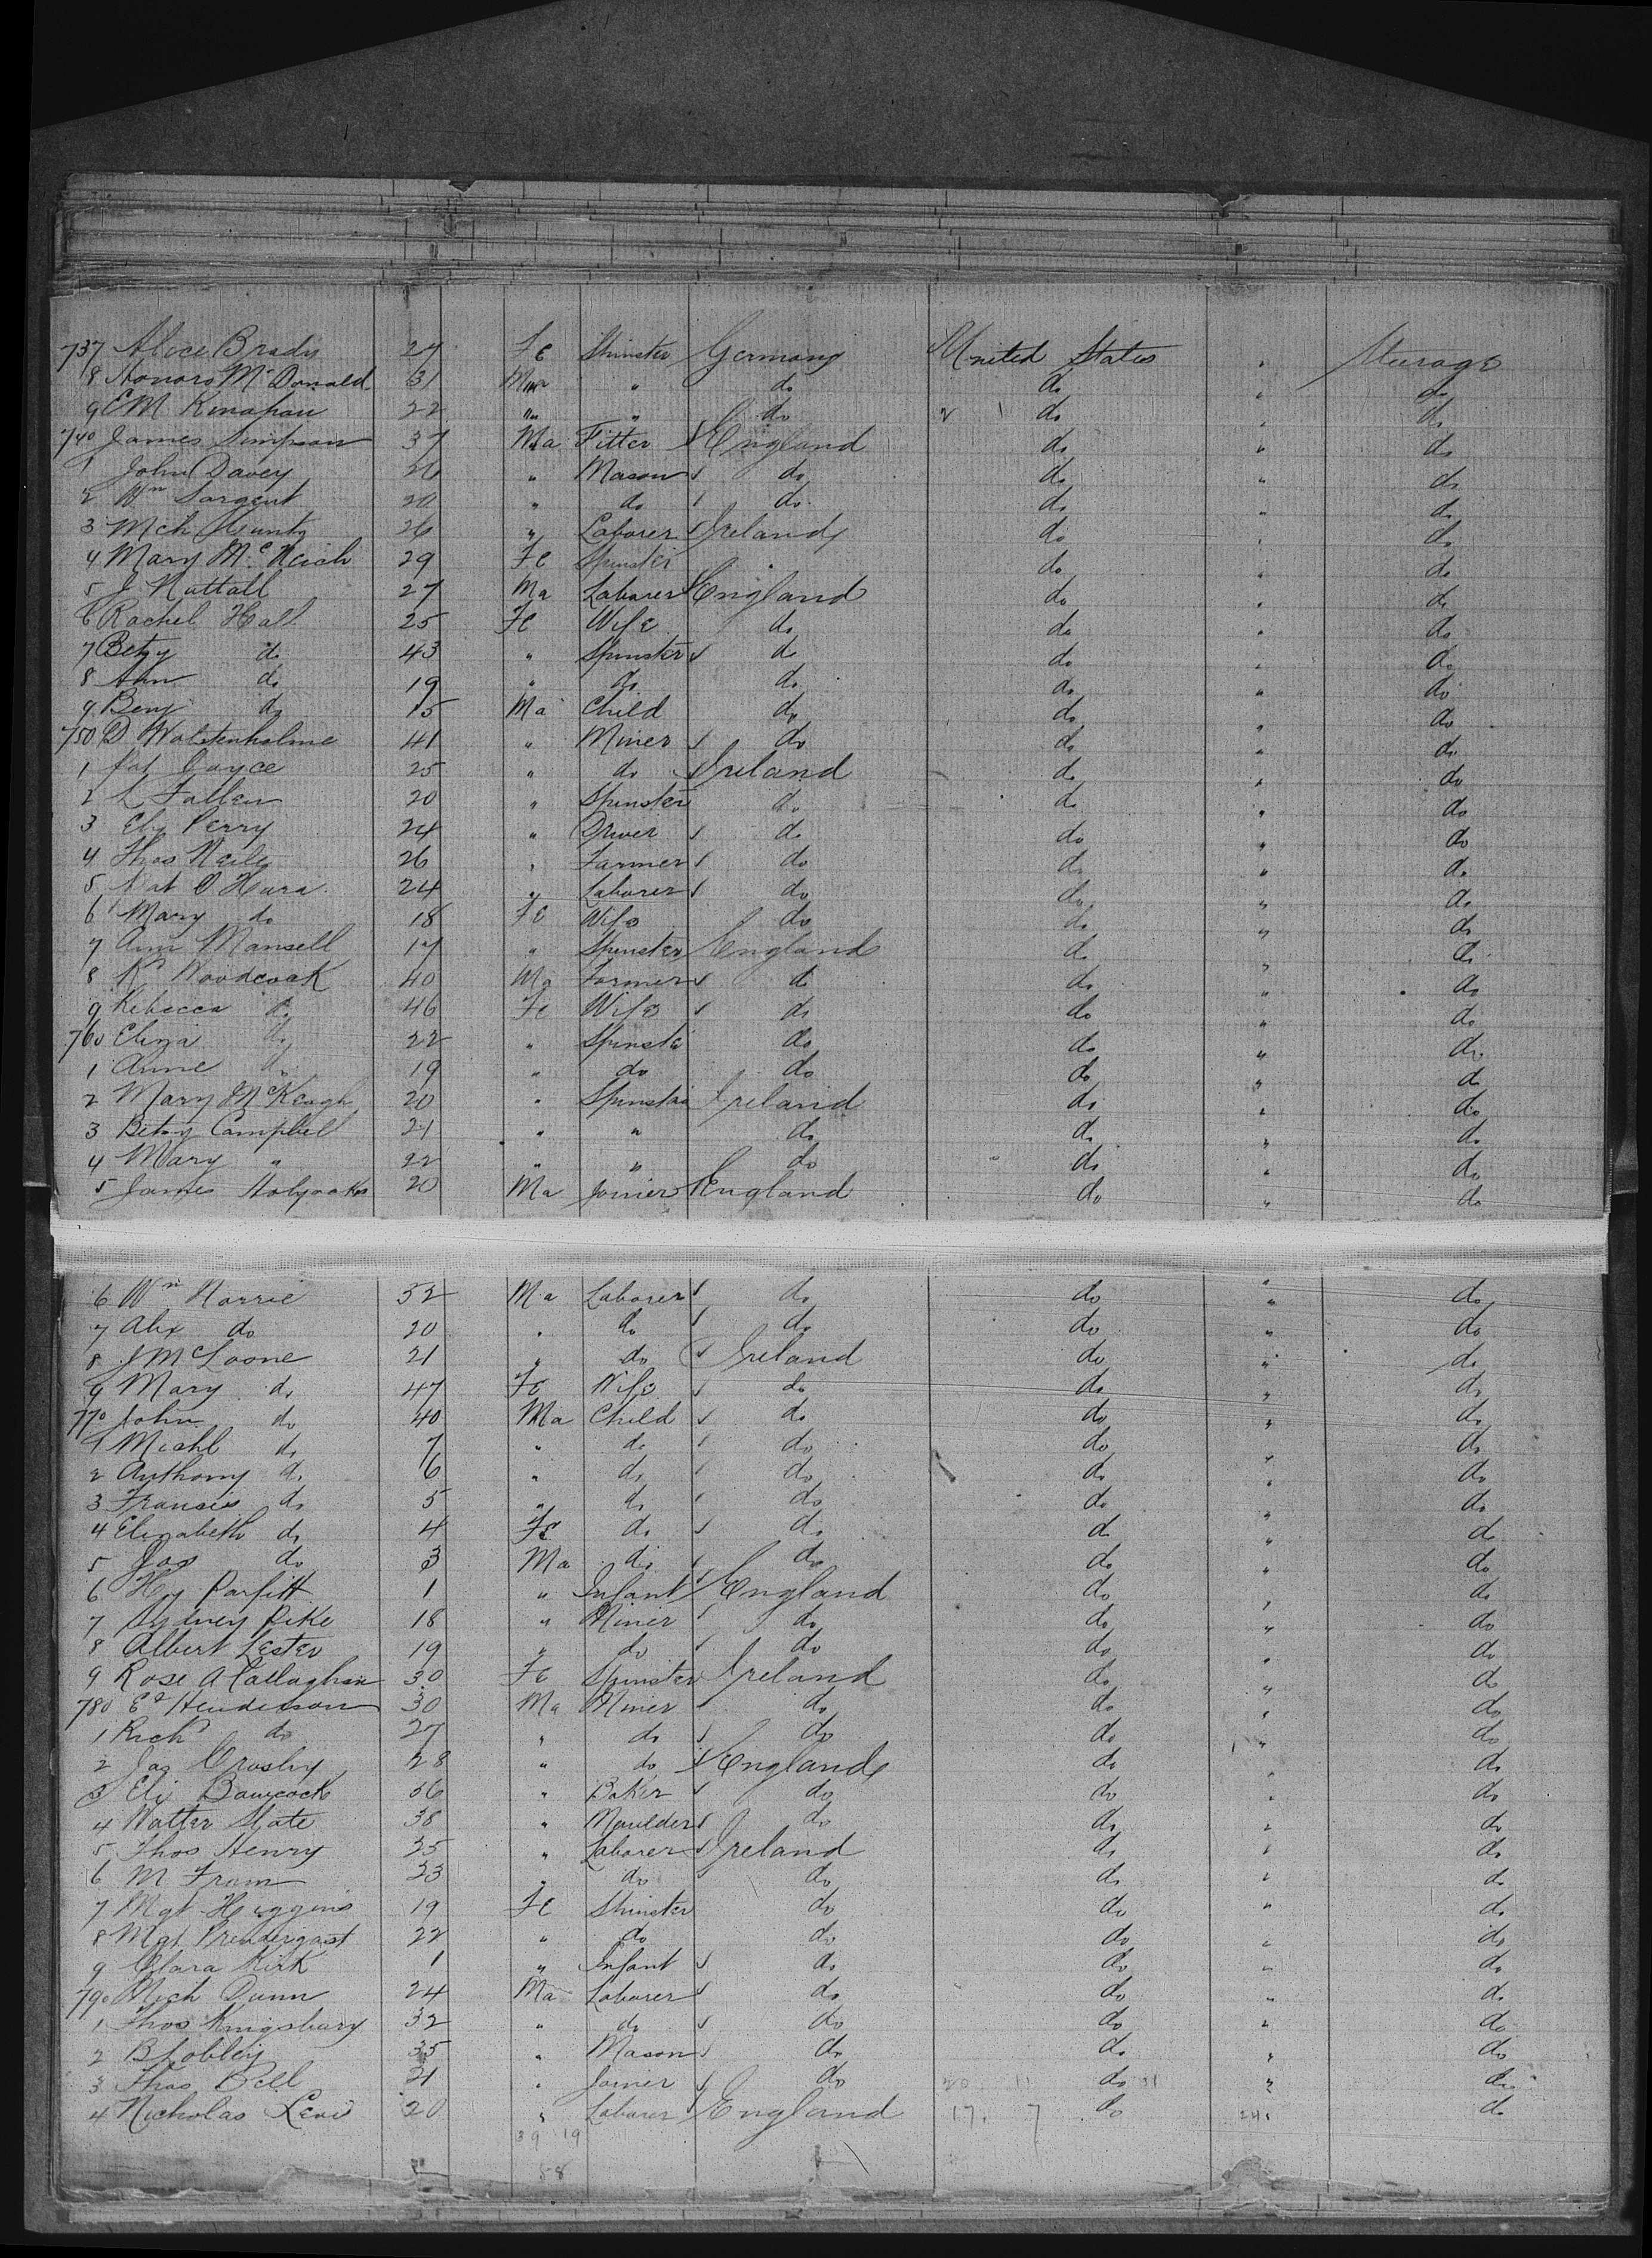 737 Alice Brady 27 Fe Spinster Germany United States " Steerage
8 Honora McDonald 31 " " do do " do
9 EM Kinahan 22 " " do do " do
740 James Simpson 37 Ma Fitter England do " do
1 John Davey 26 " Mason do do " do
2 Wm Sargent 20 " do do do " do
3 Mch 26 " Laborer Ireland do " do
4 Mary 29 Fe Spinster " do " do
5 J Nuttall 27 Ma Laborer England do " do
6 Rachel Hall 25 Fe Wife do do " do
7 Betsy do 43 " Spinster do do " do
8 Ann do 19 " do do do " do
9 Benj do 15 Ma Child do do " do
750 D Wolstenholme 41 " Miner do do " do
1 Pat Joyce 25 " do Ireland do " do
2 L Fallen 20 " Spinster do do " do
3 Eli Perry 24 " Driver do do " do
4 Thos Neily 26 " Farmer do do " do
5 Pat O Hara 24 " Laborer do do " do
6 Mary do 18 Fe Wife do do " do
7 Ann Mansell 17 " Spinster England do " do
8 Rd Woodcock 40 Ma Farmer do do " do
9 Rebecca do 46 Fe Wife do do " do
760 Eliza do 22 " Spinste do do " do
1 Anne do 19 " do do do " do
2 Mary McKeogh 20 " Spinster Ireland do " do
3 Betsy Campbell 21 " " do do " do
4 Mary " 22 " " do do " do
5 James Holyoake 20 Ma Joiner England do " do
6 Wm Norrie 32 Ma Laborer do do " do
7 Alex do 20 " do do do " do
8 J McLoone 21 " do Ireland do " do
9 Mary do 47 Fe Wife do do " do
770 John do 40 Ma Child do do " do
1 Michl do 7 " do do do " do
2 Anthony do 6 " do do do " do
3 Francis do 5 " do do do " do
4 Elizabeth do 4 Fe do do do " do
5 Jas do 3 Ma do do do " do
6 Hy Parfitt 1 " Infant England do " do
7 Sydney Pike 18 " Miner do do " do
8 Albert Lester 19 " do do do " do
9 Rose O Callaghan 30 Fe Spinster Ireland do " do
780 Ed Henderson 30 Ma Miner do do " do
1 Richd do 27 " do do do " do
2 Jas Crosby 28 " do England do " do
3 Eli Bawcock 56 " Baker do do " do
4 Walter State 38 " Moulder do do " do
5 Thos Henry 25 " Laborer Ireland do " do
6 M Fram 23 " do do do " do
7 Mgt Higgins 19 Fe Spinster do do " do
8 Mgt Prendergast 22 " do do do " do
9 Clara Kirk 1 " Infant do do " do
790 Mich Dunn 24 Ma Laborer do do " do
1 Thos Kingsbury 32 " do do do " do
2 B Lobley 35 " Mason do do " do
3 Thos Bell 21 " Joiner do 20 11 do 31 " do
4 Nicholas Levi 20 " Laborer England 17. 7 do 241 do
39 19
58